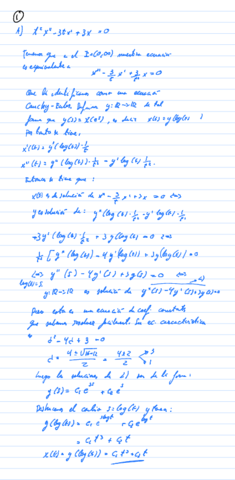 ①
1) t²x'' - 3tx' + 3x = 0
Tenemos que en el I = (0,∞) nuestra ecuación
es equivalente a
x'' - 3/t x' + 3/t² x = 0
Que la identificamos como una ecuación
Cauchy-Euler. Definimos y: ℝ → ℝ de tal
forma que y(s) = x(eˢ), es decir x(t) = y(log(t))
Por tanto se tiene:
x'(t) = y'(log(t)) · 1/t
x''(t) = y''(log(t)) · 1/t² - y'(log t) · 1/t²
Entonces se tiene que:
x(t) es solución de
y es solución de: y''(log t) · 1/t² - y'(log t) · 1/t²
- 3y'(log t) · 1/t² + 3y(log t) = 0
1/t² [y''(log(t)) - 4y'(log(t)) + 3y(log(t))] = 0
y''(s) - 4y'(s) + 3y(s) = 0
log(t) = s
y: ℝ → ℝ es solución de y''(s) - 4y'(s) + 3y(s) = 0
Pero esta es una ecuación de coef. constantes
que sabemos resolver fácilmente. Su ec. característica
es
λ² - 4λ + 3 = 0
λ = (4 ± √(16-12))/2 = (4 ± 2)/2 3 1
Luego las soluciones de son de la forma:
y(s) = c₁e³ˢ + c₂eˢ
Deshacemos el cambio s = log(t) y queda:
y(log(t)) = c₁e^{3 log t} + c₂e^{log t}
= c₁t³ + c₂t
x(t) = y(log(t)) = c₁t³ + c₂t